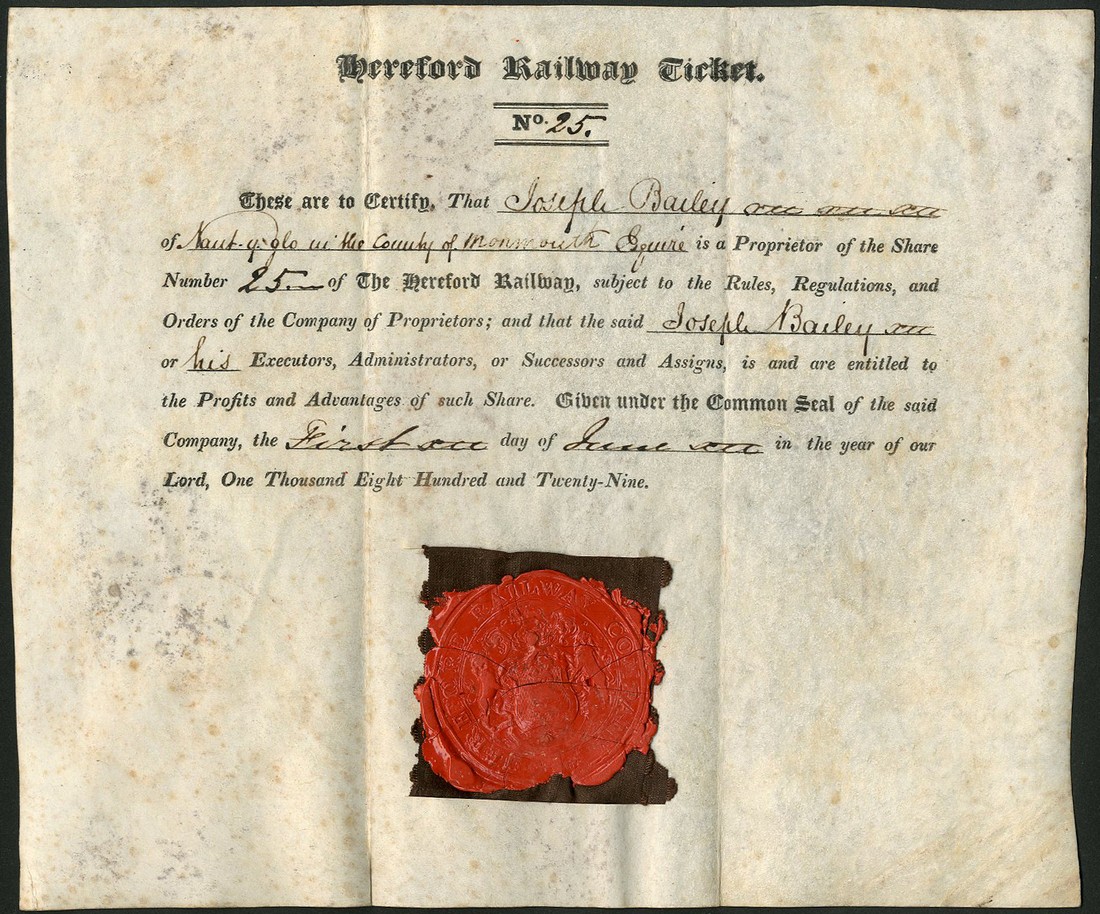 Hereford Railway Ticket.
No. 25.
These are to Certify, That Joseph Bailey
of Nant-y-glo in the County of Monmouth Esquire is a Proprietor of the Share
Number 25 of The Hereford Railway, subject to the Rules, Regulations, and
Orders of the Company of Proprietors; and that the said Joseph Bailey
or his Executors, Administrators, or Successors and Assigns, is and are entitled to
the Profits and Advantages of such Share. Given under the Common Seal of the said
Company, the First day of June in the year of our
Lord, One Thousand Eight Hundred and Twenty-Nine.
RAILWAY CO